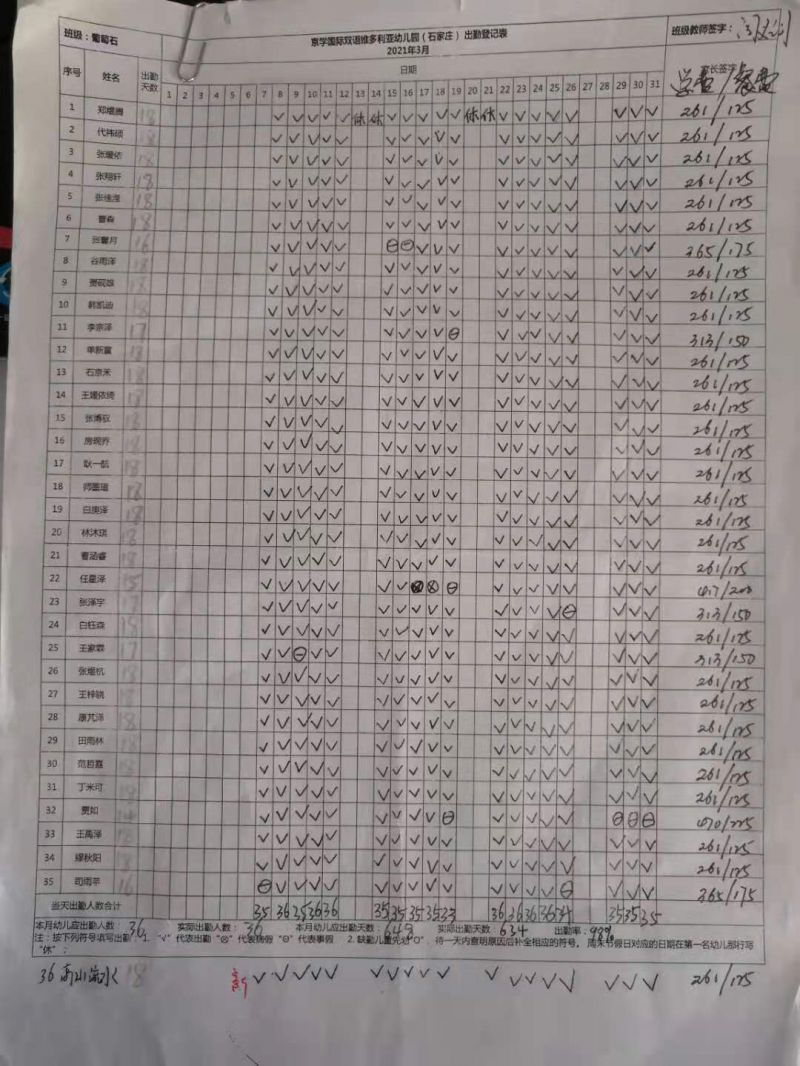 班级：葡萄石 京学国际双语维多利亚幼儿园（石家庄）出勤登记表 班级教师签字：
2021年3月
序号 姓名 出勤天数 日期 家长签字
学费/餐费
1 2 3 4 5 6 7 8 9 10 11 12 13 14 15 16 17 18 19 20 21 22 23 24 25 26 27 28 29 30 31
1 18 √ √ √ √ √ 休 休 √ √ √ √ √ 休 休 √ √ √ √ √ √ √ √ 261/125
2 代祎硕 18 √ √ √ √ √ √ √ √ √ √ √ √ √ √ √ √ √ √ 261/125
3 张煖依 18 √ √ √ √ √ √ √ √ √ √ √ √ √ √ √ √ √ √ 261/125
4 张翔轩 18 √ √ √ √ √ √ √ √ √ √ √ √ √ √ √ √ √ √ 261/125
5 18 √ √ √ √ √ √ √ √ √ √ √ √ √ √ √ √ √ √ 261/125
6 曹森 18 √ √ √ √ √ √ √ √ √ √ √ √ √ √ √ √ √ √ 261/125
7 张馨月 16 √ √ √ √ √ ⊖ ⊖ √ √ √ √ √ √ √ √ √ √ √ 365/175
8 谷雨泽 18 √ √ √ √ √ √ √ √ √ √ √ √ √ √ √ √ √ √ 261/125
9 贾砚雄 18 √ √ √ √ √ √ √ √ √ √ √ √ √ √ √ √ √ √ 261/125
10 韩凯迪 18 √ √ √ √ √ √ √ √ √ √ √ √ √ √ √ √ √ √ 261/125
11 李宗泽 17 √ √ √ √ √ √ √ √ √ ⊖ √ √ √ √ √ √ √ √ 313/150
12 单新童 18 √ √ √ √ √ √ √ √ √ √ √ √ √ √ √ √ √ √ 261/125
13 石京禾 18 √ √ √ √ √ √ √ √ √ √ √ √ √ √ √ √ √ √ 261/125
14 王媛依绮 18 √ √ √ √ √ √ √ √ √ √ √ √ √ √ √ √ √ √ 261/125
15 张博驭 18 √ √ √ √ √ √ √ √ √ √ √ √ √ √ √ √ √ √ 261/125
16 房琬乔 18 √ √ √ √ √ √ √ √ √ √ √ √ √ √ √ √ √ √ 261/125
17 耿一航 18 √ √ √ √ √ √ √ √ √ √ √ √ √ √ √ √ √ √ 261/125
18 18 √ √ √ √ √ √ √ √ √ √ √ √ √ √ √ √ √ √ 261/125
19 白庚泽 18 √ √ √ √ √ √ √ √ √ √ √ √ √ √ √ √ √ √ 261/125
20 林沐琪 18 √ √ √ √ √ √ √ √ √ √ √ √ √ √ √ √ √ √ 261/125
21 曹涵睿 18 √ √ √ √ √ √ √ √ √ √ √ √ √ √ √ √ √ √ 261/125
22 任星泽 15 √ √ √ √ √ √ √ ⊗ ⊗ ⊖ √ √ √ √ √ √ √ √ 417/200
23 张泽宇 17 √ √ √ √ √ √ √ √ √ √ √ √ √ √ ⊖ √ √ √ 313/150
24 白钰森 18 √ √ √ √ √ √ √ √ √ √ √ √ √ √ √ √ √ √ 261/125
25 王家霖 17 √ √ ⊖ √ √ √ √ √ √ √ √ √ √ √ √ √ √ √ 313/150
26 张煜杭 18 √ √ √ √ √ √ √ √ √ √ √ √ √ √ √ √ √ √ 261/125
27 王梓晓 18 √ √ √ √ √ √ √ √ √ √ √ √ √ √ √ √ √ √ 261/125
28 康芃泽 18 √ √ √ √ √ √ √ √ √ √ √ √ √ √ √ √ √ √ 261/125
29 田雨林 18 √ √ √ √ √ √ √ √ √ √ √ √ √ √ √ √ √ √ 261/125
30 范哲嘉 18 √ √ √ √ √ √ √ √ √ √ √ √ √ √ √ √ √ √ 261/125
31 丁米可 18 √ √ √ √ √ √ √ √ √ √ √ √ √ √ √ √ √ √ 261/125
32 贾如 14 √ √ √ √ √ √ √ √ √ ⊖ √ √ √ √ √ ⊖ ⊖ ⊖ 470/225
33 王禹泽 18 √ √ √ √ √ √ √ √ √ √ √ √ √ √ √ √ √ √ 261/125
34 穆秋阳 18 √ √ √ √ √ √ √ √ √ √ √ √ √ √ √ √ √ √ 261/125
35 司雨芊 16 ⊖ √ √ √ √ √ √ √ √ √ √ √ √ √ ⊖ √ √ √ 365/175
当天出勤人数合计 35 36 35 36 36 35 35 35 35 33 36 36 36 36 34 35 35 35
本月幼儿应出勤人数：36 实际出勤人数：36 本月幼儿应出勤天数：648 实际出勤天数：634 出勤率：98%
注：按下列符号填写出勤：1. "√"代表出勤"⊗"代表病假"⊖"代表事假 2. 缺勤儿童先划"O"，待一天内查明原因后补全相应的符号，周末节假日对应的日期在第一名幼儿部行写
"休"；
36 高山流水 18 √ √ √ √ √ √ √ √ √ √ √ √ √ √ √ √ √ 261/125